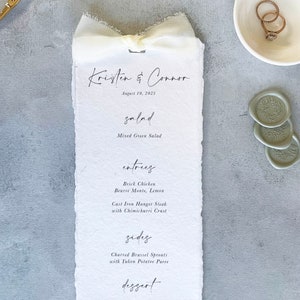 Kristen & Connor
August 19, 2023
salad
Mixed Green Salad
entrees
Brick Chicken
Beurre Monte, Lemon
Cast Iron Hanger Steak
with Chimichurri Crust
sides
Charred Brussel Sprouts
with Yukon Potatoe Puree
dessert